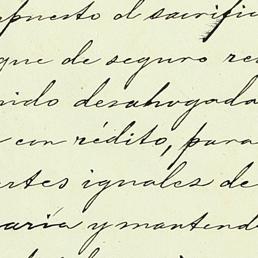 puesto el sacrifi
que de seguro re
nido desahogada
con rédito, para
rtes iguales de
aria y mantend